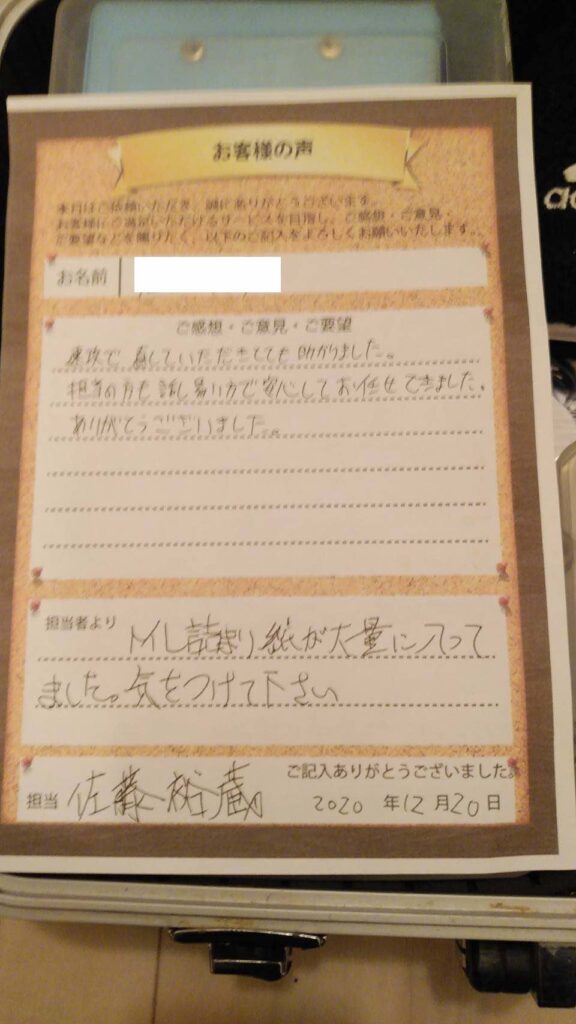 お客様の声
本日はご依頼いただき、誠にありがとうございます。
お客様にご満足いただけるサービスを目指し、ご感想・ご意見・
ご要望などを賜りたく、以下のご記入をよろしくお願いいたします。
お名前
ご感想・ご意見・ご要望
速攻で直していただきとても助かりました。
担当の方も話し易い方で安心してお任せできました。
ありがとうございました。
担当者より
トイレ詰まり紙が大量に入ってて
ました。気をつけて下さい
ご記入ありがとうございました。
担当 佐藤裕蔵 2020 年12月20日